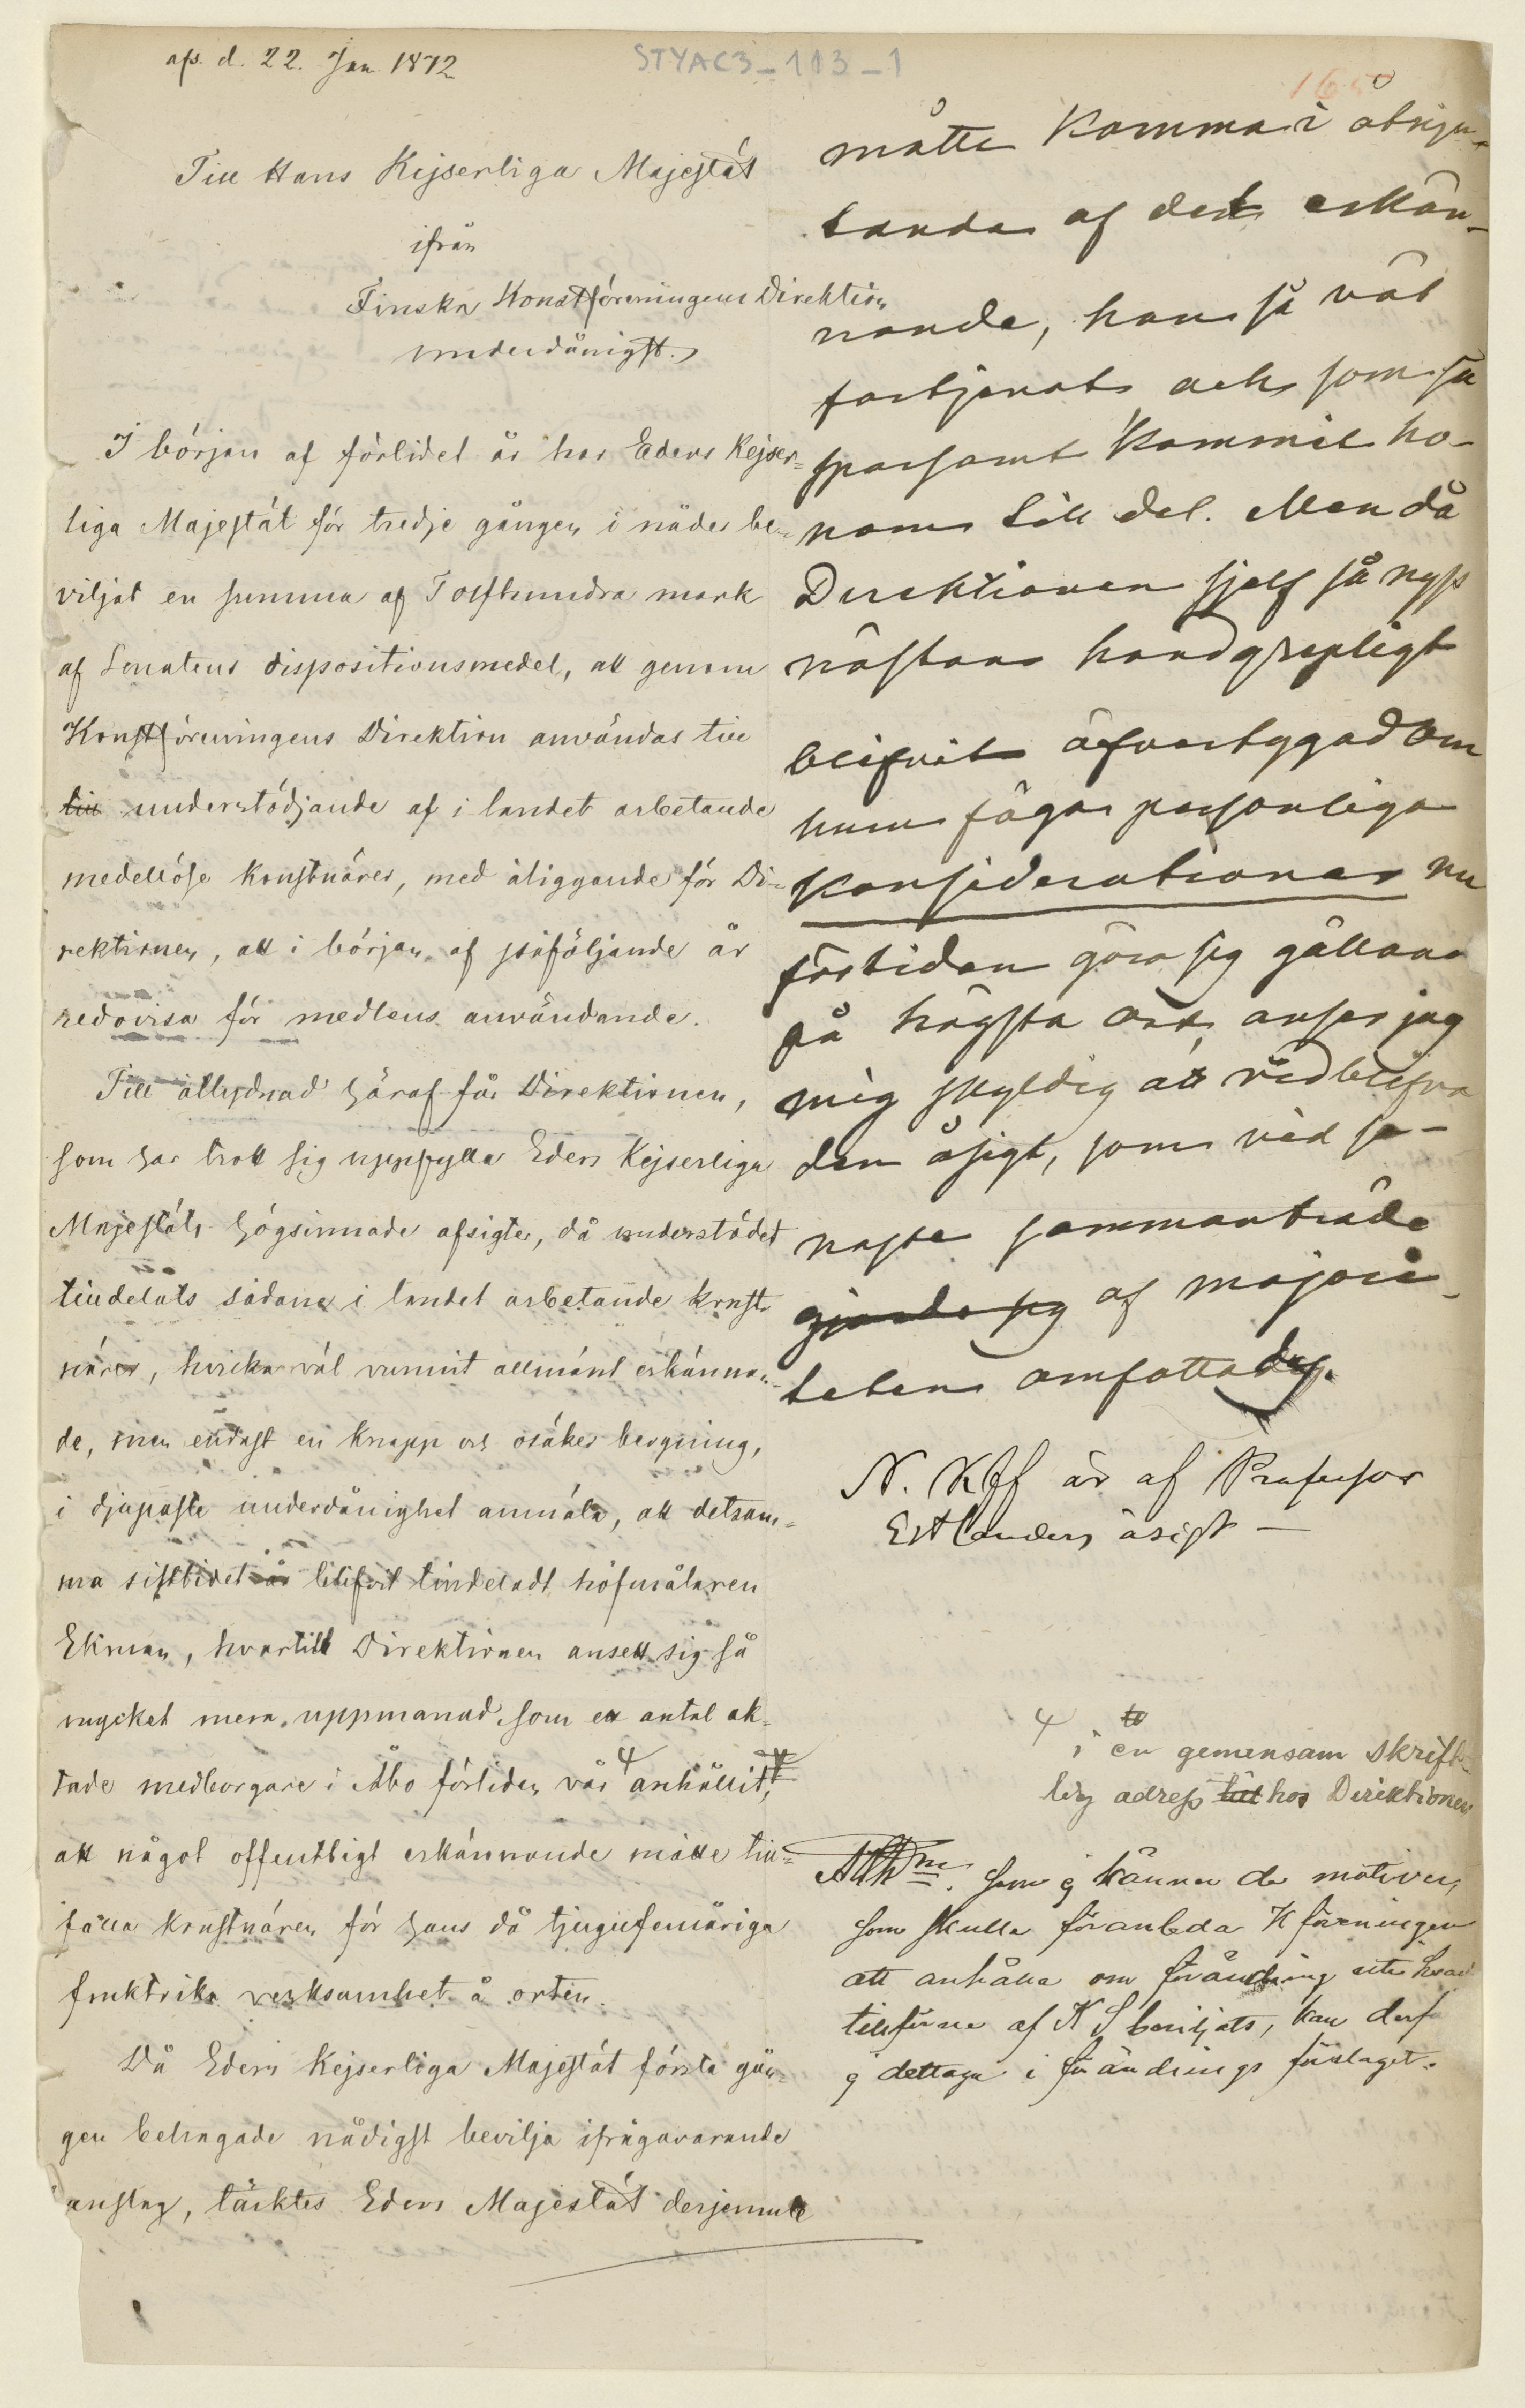 afs. d. 22. Jan 1872
STYAC3_113_1
165
Till Hans Kejserliga Majestät
ifrån
Finska Konstföreningens Direktion
underdånigst.
I början af förlidet år har Eders Kejser=
liga Majestät för tredje gången i nåder be-
viljat en summa af Tolfhundra mark
af Senatens dispositionsmedel, att genom
Konstföreningens Direktion användas till
till understödjande af i landet arbetande
medellöse konstnärer, med åliggande för Di-
rektionen, att i början af påföljande år
redovisa för medlens användande.
Till åtlydnad häraf får Direktionen,
som har trott sig uppfylla Eders Kejserliga
Majestäts högsinnade afsigter, då understödet
tilldelats sådane i landet arbetande konst-
närer, hvilka väl vunnit allmänt erkännan-
de, men endast en knapp och osäker bergning,
i djupaste underdånighet anmäla, att detsam=
ma sistlidet år blifvit tilldeladt hofmålaren
Ekman, hvartill Direktionen ansett sig så
mycket mera uppmanad, som ett antal ak-
tade medborgare i Åbo förliden vår anhållit,
att något offentligt erkännande måtte till=
falla konstnären för hans då tjugufemåriga
fruktrika verksamhet å orten.
Då Eders Kejserliga Majestät första gån-
gen behagade nådigst bevilja ifrågavarande
anslag, täcktes Eders Majestät derjemte
måtte komma i åtnju-
tande af det erkän-
nande, han så väl
förtjenat och som så
sparsamt kommit ho-
nom till del. Men då
Direktionen sjelf så nyss
nästan handgripligt
blifvit öfvertygad om
huru föga personliga
konsiderationer nu
förtiden göra sig gällande
på högsta ort, anser jag
mig skyldig att vidblifva
den åsigt, som vid se-
naste sammanträde
gjorde sig af majori-
teten omfattades.
N. Kff är af Professor
Estlanders åsigt —
i en gemensam skrift-
lig adress till hos Direktionen
som ej känner de motiver,
som skulle föranleda K föreningen
att anhålla om förändring uti hvad
tillförne af K S beviljats, kan derf
ej deltaga i förändrings förslaget.